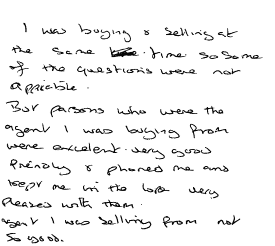 I was buying & selling at
the same time so some
of the questions were not
appricible.
But parsons who were the
agent I was buying from
were excelent. very good
Frindly & phoned me and
kept me in the loop very
pleased with them.
agent I was selling from not
so good.